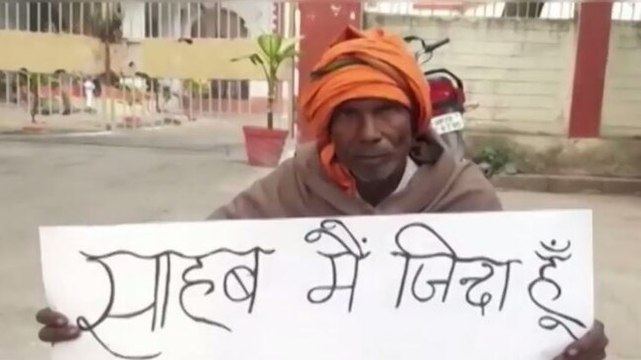 साहब मैं जिंदा हूँ